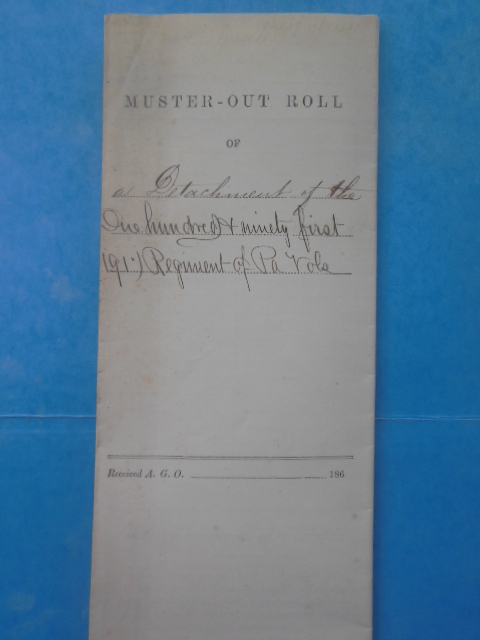 MUSTER-OUT ROLL
OF
a Detachment of the
One hundred & ninety first
(191st) Regiment of Pa Vols
Received A. G. O. 186